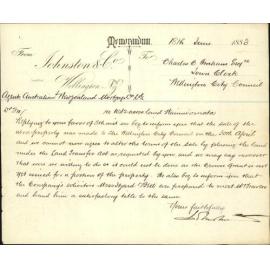 Memorandum.
15th June 1883
From Johnston & Co
Wellington, NZ
Charles C. Graham Esqre
Town Clerk
Wellington City Council
Agents Australian & New Zealand Mortgage Co Ld
D/Sir
re Kilbirnie land
Replying to your favor of 9th inst we beg to inform you that the sale of the
above property was made to the Wellington City Council on the 30th April
and we cannot now agree to alter the terms of the sale by placing the land
under the Land Transfer Act as requested by you and we may say moreover
that were we willing to do so it could not be done as the Crown Grant is not
yet issued for a portion of the property. We also beg to inform you that
the Company's solicitors Messrs Izard & Bell are prepared to meet
and hand him a satisfactory title to the same.
Yours faithfully